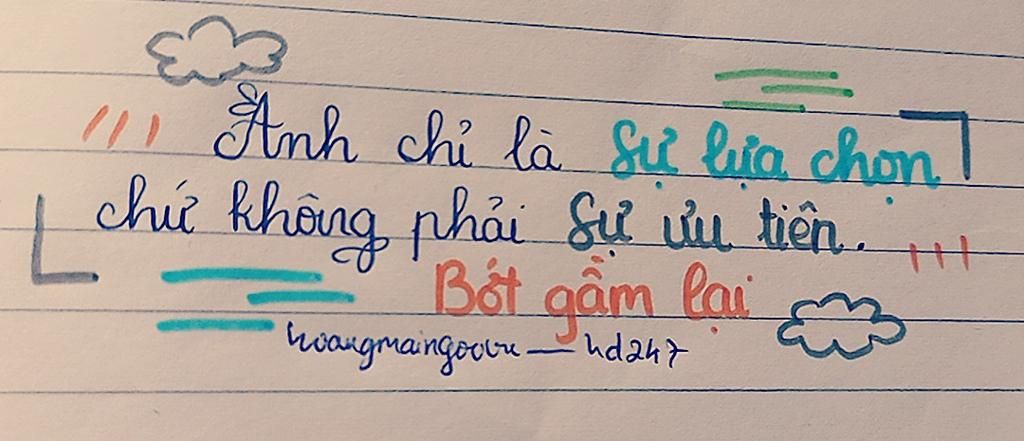 Anh chỉ là sự lựa chọn
chứ không phải sự ưu tiên.
Bớt gầm lại
hd247